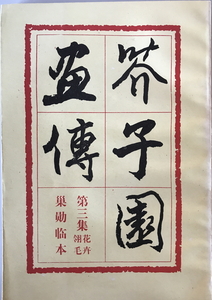 芥子園
畫傳
第三集
花卉
翎毛
巢勋临本